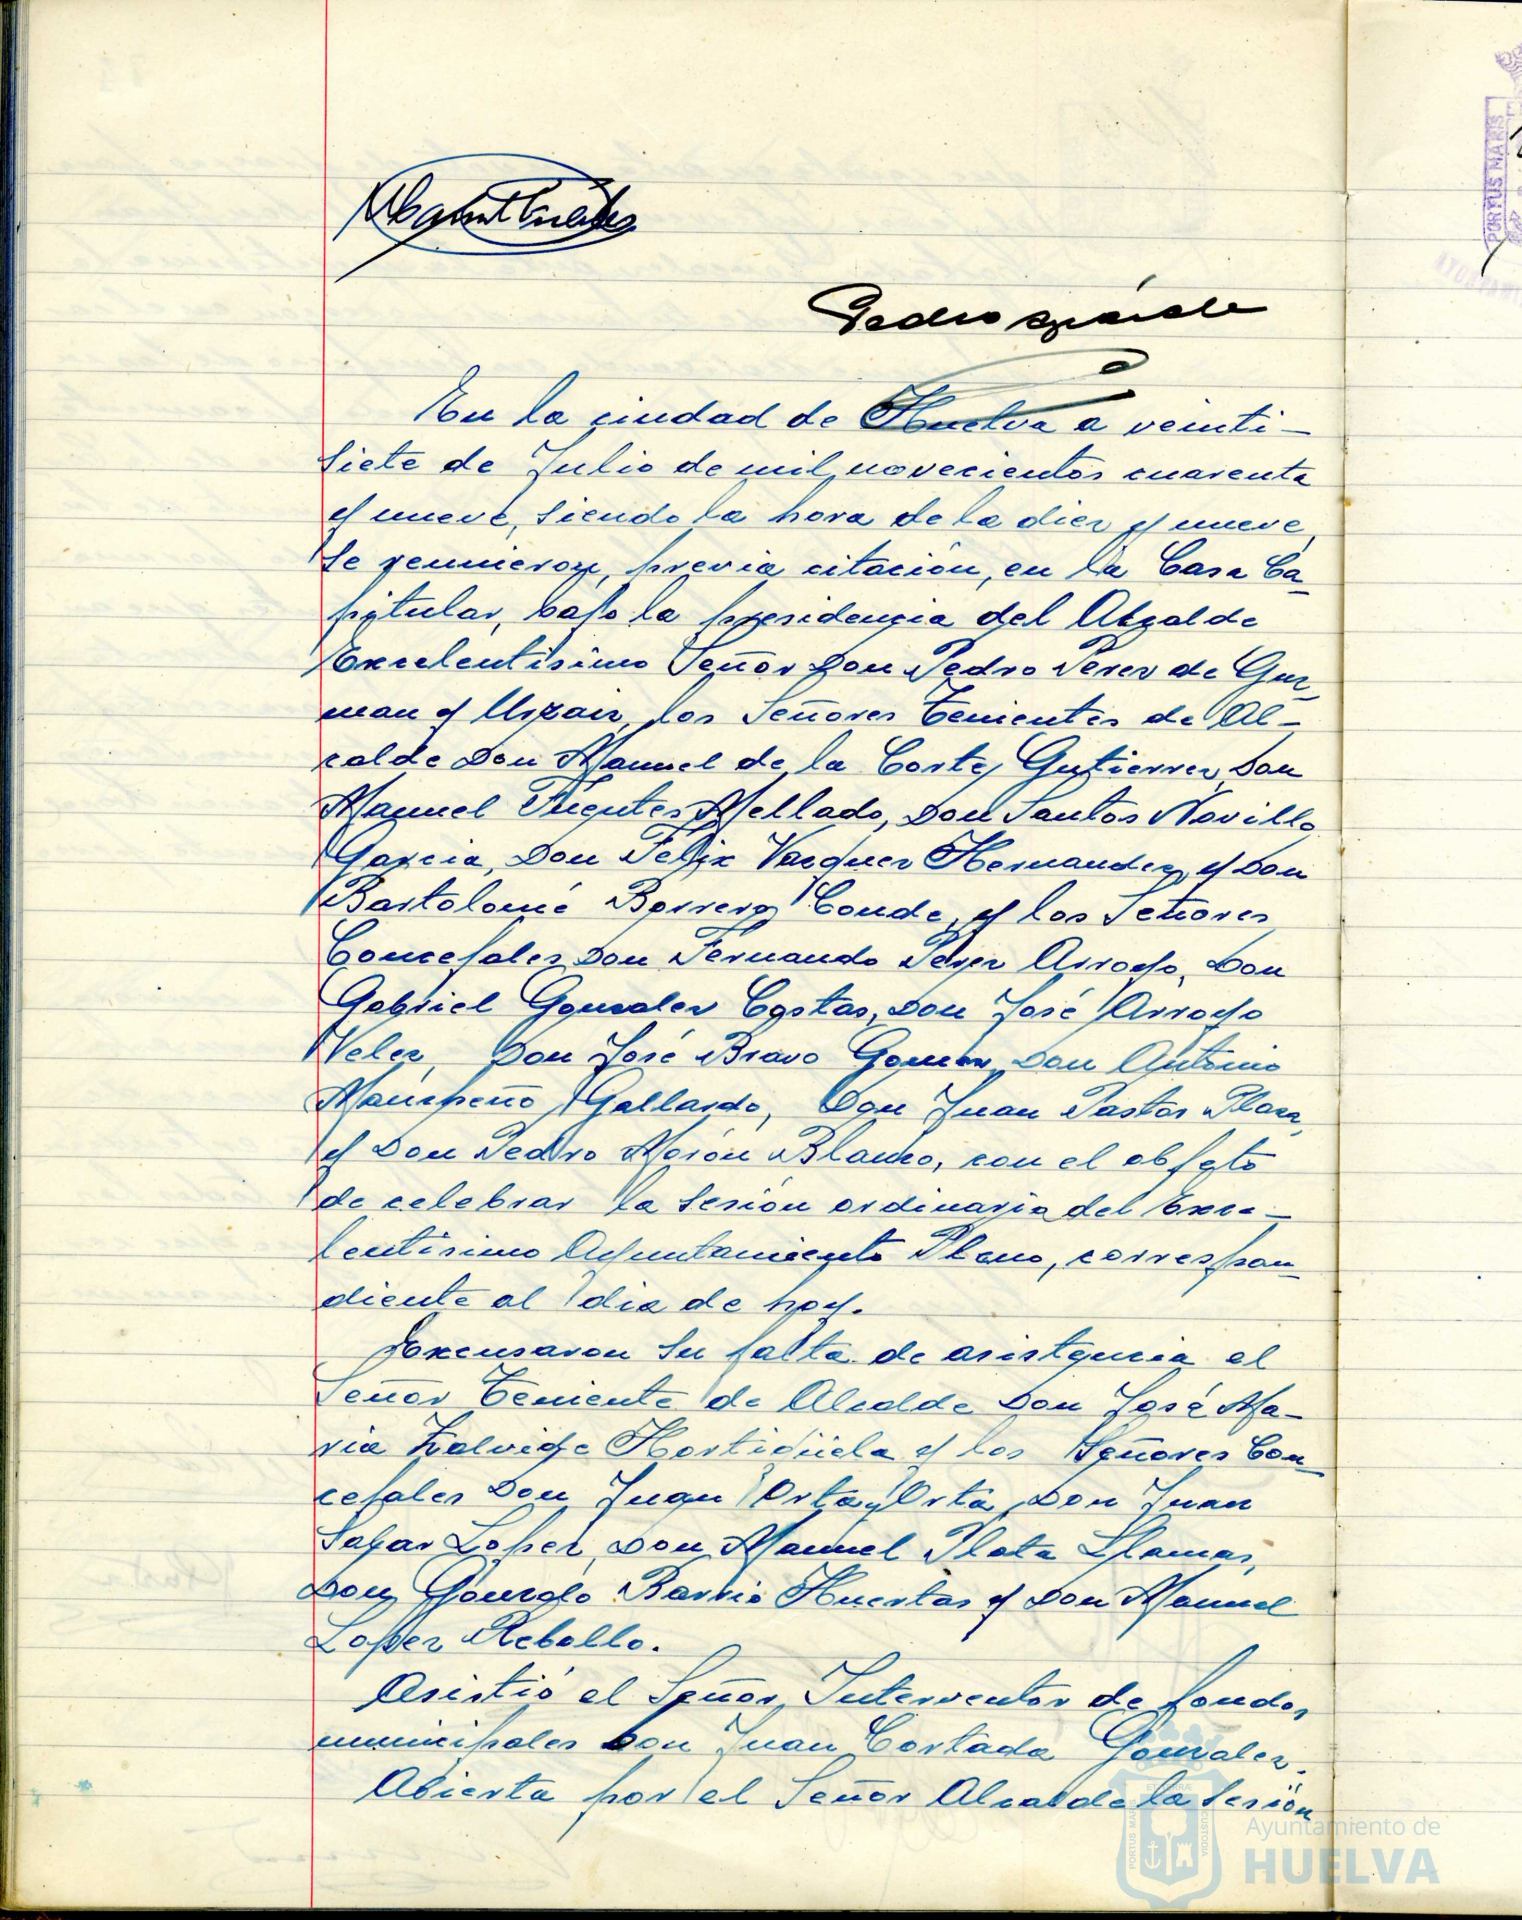 En la ciudad de Huelva a veinti-
siete de Julio de mil novecientos cuarenta
y nueve, siendo la hora de la diez y nueve,
se reunieron, previa citación, en la Casa Ca-
pitular, bajo la presidencia del Alcalde
Excelentisimo Señor Don Pedro Perez de Guz-
man y Urzaiz, los Señores Tenientes de Al-
calde Don Manuel de la Corte Gutierrez, Don
Manuel Fuentes Mellado, Don Santos Novillo
Garcia, Don Felix Vazquez Hernandez, y Don
Bartolomé Borrero Conde, y los Señores
Concejales Don Fernando Perez Arroyo, Don
Gabriel Gonzalez Costas, Don José Arroyo
Velez, Don José Bravo Gomez, Don Antonio
Mancheño Gallardo, Don Juan Pastor Plaza,
y Don Pedro Morón Blanco, con el objeto
de celebrar la sesión ordinaria del Exce-
lentisimo Ayuntamiento Pleno, correspon-
diente al dia de hoy.
Excusaron su falta de asistencia el
Señor Teniente de Alcalde Don José Ma-
ria Zalvide Hortigüela y los Señores Con-
cejales Don Juan Orta y Orta, Don Juan
Lopez, Don Manuel Plata Llamas,
Don Gonzalo Barrio Huertas y Don Manuel
Lopez Rebollo.
Asistió el Señor Interventor de fondos
municipales Don Juan Cortada Gonzalez.
Abierta por el Señor Alcalde la sesión
PORTUS MARIS
Ayuntamiento de
HUELVA